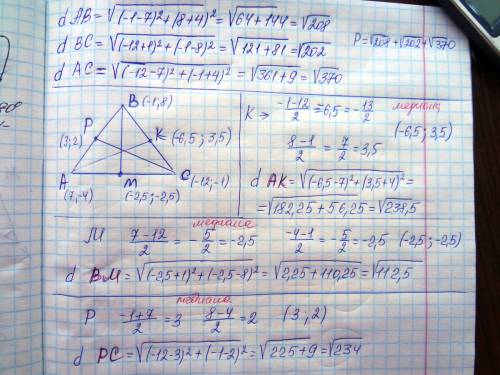 d AB = √(-1-7)²+(8+4)² = √64+144 = √208
d BC = √(-12+1)²+(-1-8)² = √121+81 = √202
P = √208 + √202 + √370
d AC = √(-12-7)²+(-1+4)² = √361+9 = √370
B (-1; 8)
P
(3; 2)
K (-6,5; 3,5)
A
(7; -4)
M
(-2,5; -2,5)
C (-12; -1)
K → -1-12/2 = -6,5 = -13/2 медиана
(-6,5; 3,5)
8-1/2 = 7/2 = 3,5
d AK = √(-6,5-7)²+(3,5+4)² =
= √182,25+56,25 = √238,5
медиана
M 7-12/2 = -5/2 = -2,5 -4-1/2 = -5/2 = -2,5 (-2,5; -2,5)
d BM = √(-2,5+1)²+(-2,5-8)² = √2,25+110,25 = √112,5
медиана
P -1+7/2 = 3 8-4/2 = 2 (3; 2)
d PC = √(-12-3)²+(-1-2)² = √225+9 = √234